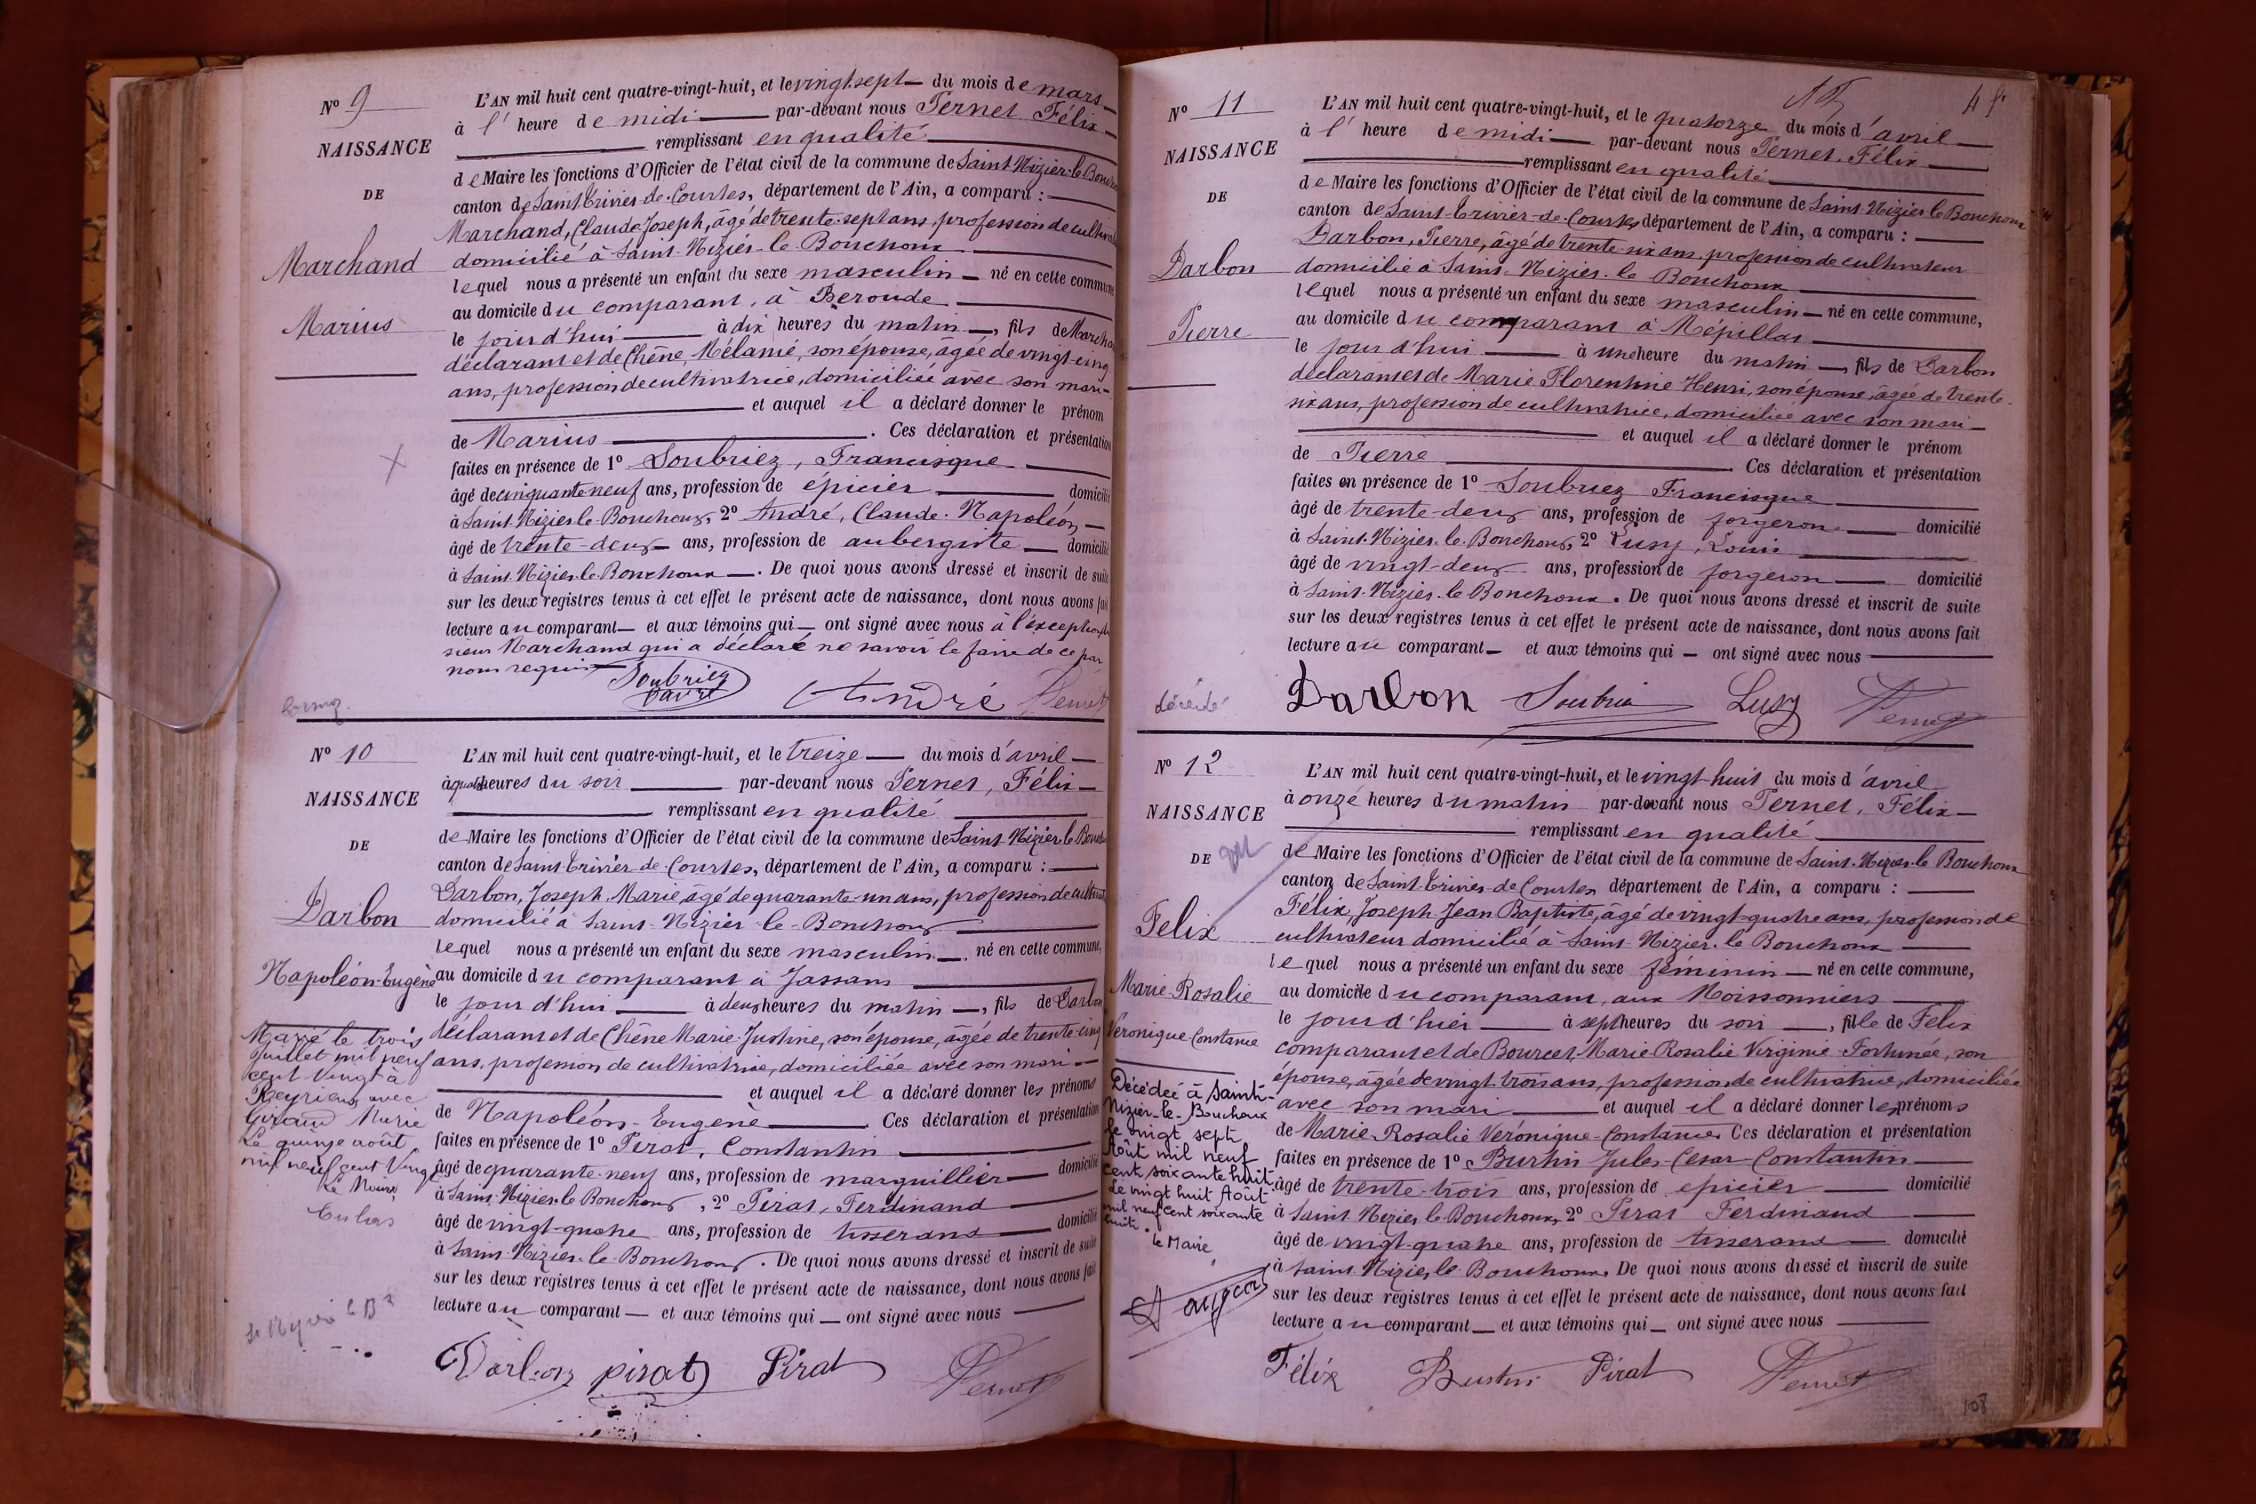 Nº 9
NAISSANCE
DE
Marchand
Marius
L'AN mil huit cent quatre-vingt-huit, et le vingt sept du mois de mars
à l' heure de midi par-devant nous Pernet Félix
remplissant en qualité
de Maire les fonctions d'Officier de l'état civil de la commune de Saint-Nizier-le-Bouchoux
canton de Saint-Trivier-de-Courtes, département de l'Ain, a comparu :
Marchand, Claude Joseph, âgé de trente-sept ans, profession de cultivat
domicilié à Saint-Nizier-le-Bouchoux
lequel nous a présenté un enfant du sexe masculin né en cette commune
au domicile du comparant, à Beroude
le jour d'hui à dix heures du matin, fils de Marchand
déclarant et de Chêne, Mélanie, son épouse, âgée de vingt-cinq
ans, profession de cultivatrice, domiciliée avec son mari
et auquel il a déclaré donner le prénom
de Marius. Ces déclaration et présentation
faites en présence de 1º Soubriez, Francisque
âgé de cinquante neuf ans, profession de épicier domicilié
à Saint-Nizier-le-Bouchoux, 2º André, Claude-Napoléon
âgé de trente-deux ans, profession de aubergiste domicilié
à Saint-Nizier-le-Bouchoux. De quoi nous avons dressé et inscrit de suite
sur les deux registres tenus à cet effet le présent acte de naissance, dont nous avons fait
lecture au comparant et aux témoins qui ont signé avec nous à l'exception du
sieur Marchand qui a déclaré ne savoir le faire de ce par
nous requis
Soubriez
André Pernet
Nº 10
NAISSANCE
DE
Darbon
Napoléon-Eugène
Marié le trois
Juillet mil neuf
cent vingt à
Reyrieux avec
Giraud Marie
Le quinze août
mil neuf cent vingt
Le Maire
L'AN mil huit cent quatre-vingt-huit, et le treize du mois d'avril
à quatre heures du soir par-devant nous Pernet, Félix
remplissant en qualité
de Maire les fonctions d'Officier de l'état civil de la commune de Saint-Nizier-le-Bouchoux
canton de Saint-Trivier-de-Courtes, département de l'Ain, a comparu :
Darbon, Joseph-Marie, âgé de quarante-un ans, profession de cultivat
domicilié à Saint-Nizier-le-Bouchoux
lequel nous a présenté un enfant du sexe masculin né en cette commune,
au domicile du comparant à Jassans
le jour d'hui à deux heures du matin, fils de Darbon
déclarant et de Chêne Marie-Justine, son épouse, âgée de trente-cinq
ans, profession de cultivatrice, domiciliée avec son mari
et auquel il a déclaré donner les prénoms
de Napoléon-Eugène Ces déclaration et présentation
faites en présence de 1º Pirat, Constantin
âgé de quarante-neuf ans, profession de marguillier domicilié
à Saint-Nizier-le-Bouchoux, 2º Pirat, Ferdinand
âgé de vingt-quatre ans, profession de tisserand domicilié
à Saint-Nizier-le-Bouchoux. De quoi nous avons dressé et inscrit de suite
sur les deux registres tenus à cet effet le présent acte de naissance, dont nous avons fait
lecture au comparant et aux témoins qui ont signé avec nous
Darbon pirat Pirat Pernet
Nº 11
NAISSANCE
DE
Darbon
Pierre
décédé
L'AN mil huit cent quatre-vingt-huit, et le quatorze du mois d'avril
à l' heure de midi par-devant nous Pernet, Félix
remplissant en qualité
de Maire les fonctions d'Officier de l'état civil de la commune de Saint-Nizier-le-Bouchoux
canton de Saint-Trivier-de-Courtes département de l'Ain, a comparu :
Darbon, Pierre, âgé de trente-six ans, profession de cultivateur
domicilié à Saint-Nizier-le-Bouchoux
lequel nous a présenté un enfant du sexe masculin né en cette commune,
au domicile du comparant à Mépillat
le jour d'hui à une heure du matin, fils de Darbon
déclarant et de Marie Florentine Henri, son épouse, âgée de trente-
six ans, profession de cultivatrice, domiciliée avec son mari
et auquel il a déclaré donner le prénom
de Pierre. Ces déclaration et présentation
faites en présence de 1º Soubriez Francisque
âgé de trente-deux ans, profession de forgeron domicilié
à Saint-Nizier-le-Bouchoux, 2º Lusy, Louis
âgé de vingt-deux ans, profession de forgeron domicilié
à Saint-Nizier-le-Bouchoux. De quoi nous avons dressé et inscrit de suite
sur les deux registres tenus à cet effet le présent acte de naissance, dont nous avons fait
lecture au comparant et aux témoins qui ont signé avec nous
Darbon Soubriez Lusy Pernet
Nº 12
NAISSANCE
DE
Felix
Marie-Rosalie
Véronique Constance
Décédée à Saint-
Nizier-le-Bouchoux
le vingt sept
Août mil neuf
cent soixante huit.
Le vingt huit Août
mil neuf cent soixante
huit.
Le Maire
L'AN mil huit cent quatre-vingt-huit, et le vingt-huit du mois d'avril
à onze heures du matin par-devant nous Pernet, Félix
remplissant en qualité
de Maire les fonctions d'Officier de l'état civil de la commune de Saint-Nizier-le-Bouchoux
canton de Saint-Trivier-de-Courtes département de l'Ain, a comparu :
Félix, Joseph-Jean-Baptiste, âgé de vingt-quatre ans, profession de
cultivateur domicilié à Saint-Nizier-le-Bouchoux
lequel nous a présenté un enfant du sexe féminin né en cette commune,
au domicile du comparant, aux Moissonniers
le jour d'hier à sept heures du soir, fille de Félix
comparant et de Bourcet, Marie Rosalie Virginie Fortunée, son
épouse, âgée de vingt-trois ans, profession de cultivatrice, domiciliée
avec son mari et auquel il a déclaré donner les prénoms
de Marie-Rosalie Véronique-Constance. Ces déclaration et présentation
faites en présence de 1º Burtin Jules Cesar Constantin
âgé de trente-trois ans, profession de épicier domicilié
à Saint Nizier le Bouchoux, 2º Pirat Ferdinand
âgé de vingt-quatre ans, profession de tisserand domicilié
à Saint-Nizier-le-Bouchoux. De quoi nous avons dressé et inscrit de suite
sur les deux registres tenus à cet effet le présent acte de naissance, dont nous avons fait
lecture au comparant et aux témoins qui ont signé avec nous
Félix Burtin Pirat Pernet
108